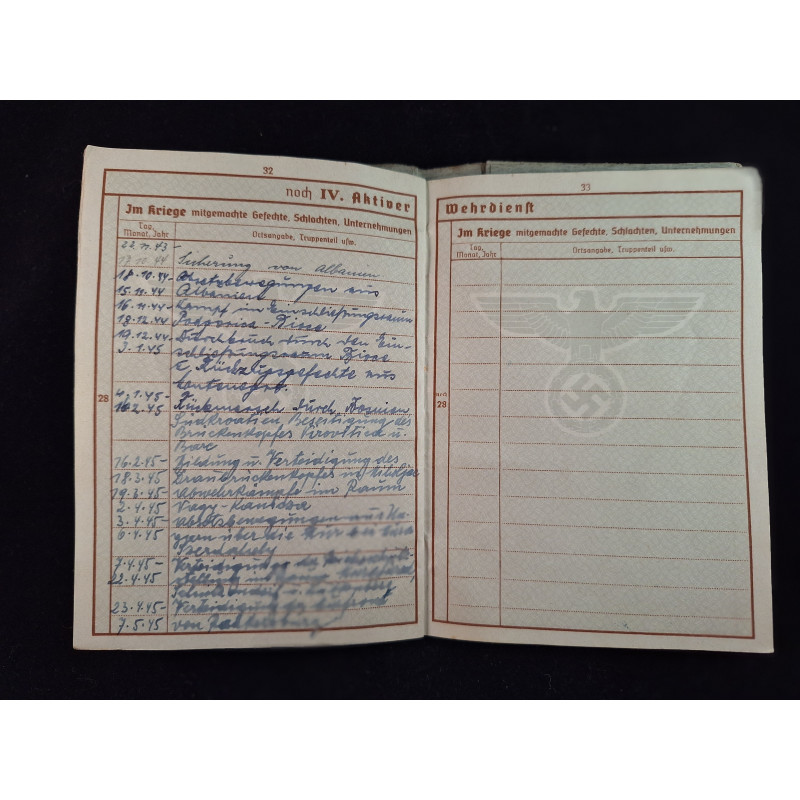 32
noch IV. Aktiver
Im Kriege mitgemachte Gefechte, Schlachten, Unternehmungen
Tag, Monat, Jahr
Ortsangabe, Truppenteil usw.
22.11.43-
17.10.44 Sicherung von Albanien
18.10.44- Absetzbewegungen aus
15.11.44 Albanien
16.11.44- Kampf im Einschließungsraum
18.12.44 Podgorica-Bioce
19.12.44- Durchbruch durch den Ein-
3.1.45 schließungsraum Bioce
u. Rückzugsgefechte aus
28
4.1.45- Rückmarsch durch Bosnien,
2.45 Südkroatien, Beseitigung des
Brückenkopfes Virovitica u.
Barc
16.2.45- Bildung u. Verteidigung des
18.3.45 Draubrückenkopfes
19.3.45- Abwehrkämpfe im Raum
2.4.45 Nagy-Kanizsa
3.4.45- Absetzbewegungen aus Un-
6.4.45 garn über die Mur
7.4.45- Verteidigung der
22.4.45 Stellung
23.4.45- Verteidigung der
7.5.45 von
33
Wehrdienst
Im Kriege mitgemachte Gefechte, Schlachten, Unternehmungen
Tag, Monat, Jahr
Ortsangabe, Truppenteil usw.
noch 28